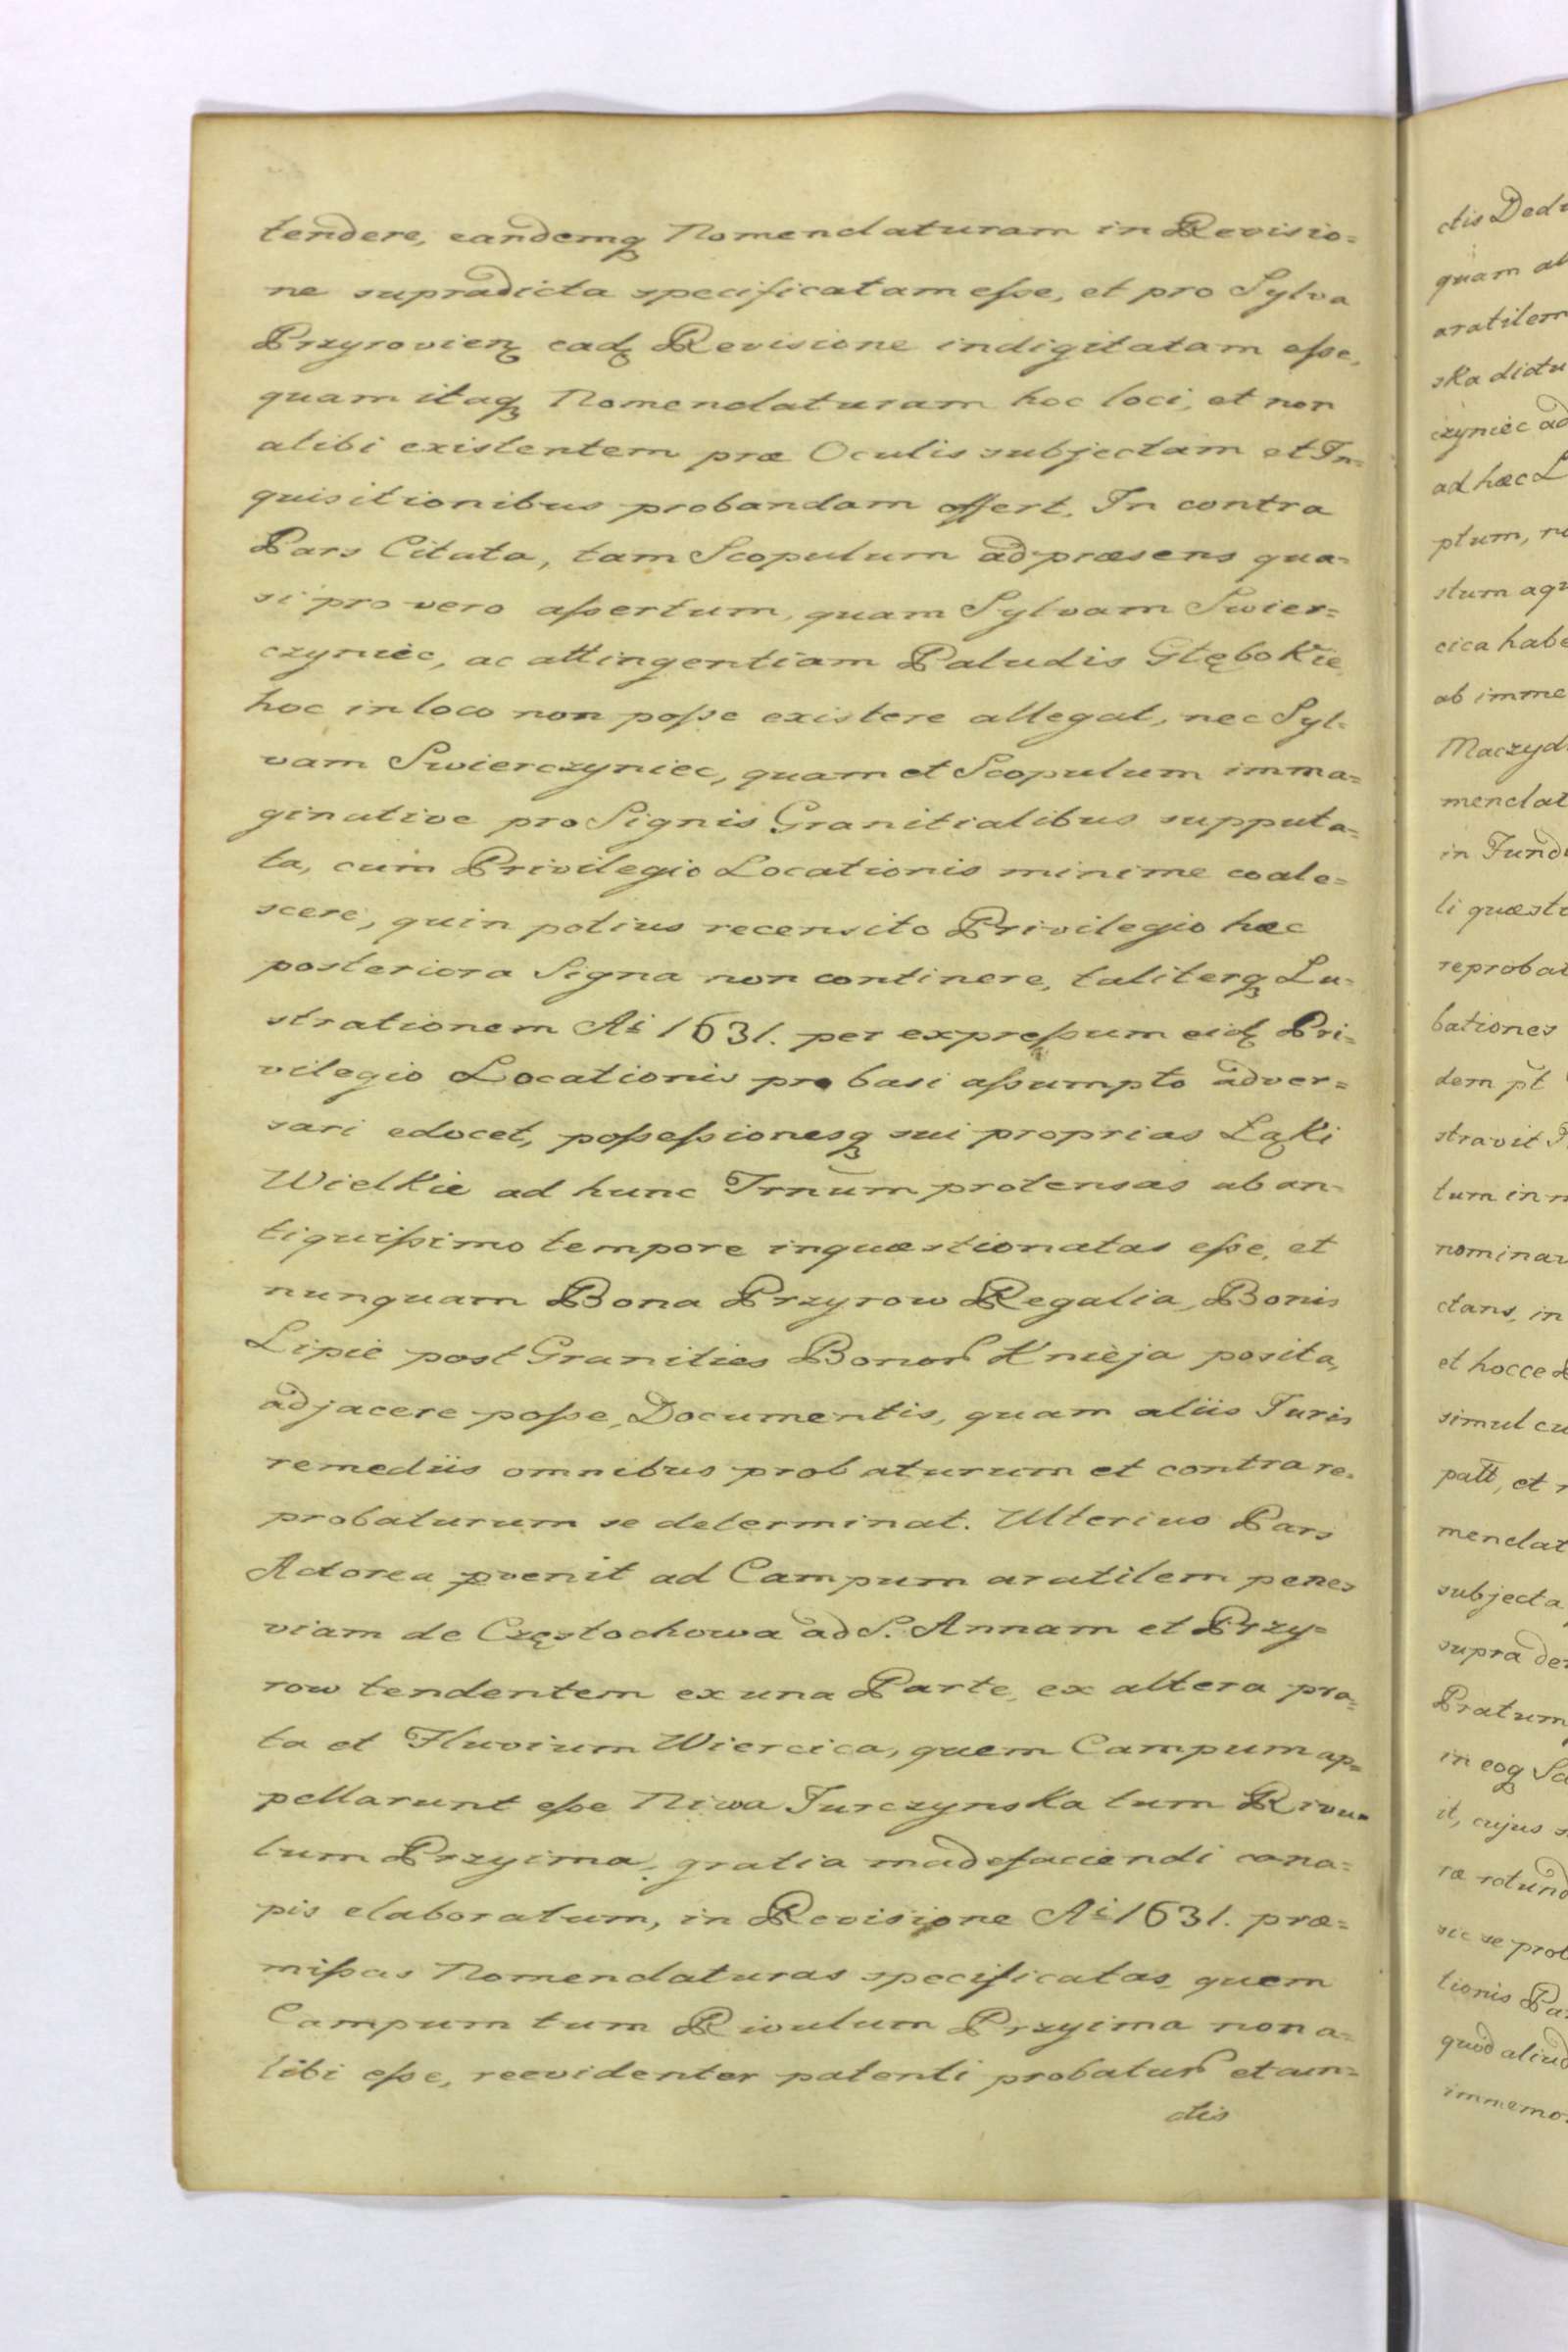 tendere, eandemq̨ Nomenclaturam in Revisio=
ne supradicta specificatam eſse, et pro Sylva
Przyrovien̨ ead̨ Revisione indigitatam eſse,
quam itaq̨ Nomenclaturam hoc loci, et non
alibi existentem præ Oculis subjectam et In=
quisitionibus probandam offert. In contra
Pars Citata, tam Scopulum ad præsens qua=
si pro vero aſsertum, quam Sylvam Swier=
czyniec, ac attingentiam Paludis Głębokie
hoc in loco non poſse existere allegat, nec Syl=
vam Swierczyniec, quam et Scopulum imma=
ginative pro Signis Granitialibus supputa=
ta, cum Privilegio Locationis minime coale=
scere, quin potius recensito Privilegio hæc
posteriora Signa non continere, taliterq̨ Lu=
strationem Ai 1631. per expreſsum eid̨ Pri=
vilegio Locationis pro basi aſsumpto adver=
sari edocet, poſseſsionesq̨ sui proprias Łąki
Wielkie ad hunc Trnum protensas ab an=
tiquiſsimo tempore inquæstionatas eſse, et
nunquam Bona Przyrow Regalia, Bonis
Lipie post Granities Bonor̃ Knieja posita,
adjacere poſse, Documentis, quam aliis Juris
remediis omnibus probaturum et contra re=
probaturum se determinat. Ulterius Pars
Actorea pvenit ad Campum aratilem penes
viam de Częstochowa ad S. Annam et Przy=
row tendentem ex una Parte, ex altera pra=
ta et Fluvium Wiercica, quem Campum ap=
pellarunt eſse Niwa Jurczynska tum Rivu=
lum Przyima, gratia madefaciendi cana=
pis elaboratum, in Revisione Ai 1631. præ=
miſsas Nomenclaturas specificatas, quem
Campum tum Rivulum Przyima non a=
libi eſse, reevidenter patenti probatur̃ et aun=
ctis
ctis Ded
quam
aratilem
ska dictu
czyniec ad
ad hæc
ptum,
stum aq
cica hab
ab imme
Maczyd
menclat
in Fund
li quæst
reprobat
bationes
dem pt
stravit
tum in
nominav
ctans, in
et hocce
simul cu
patt, et
menclat
subjecta
supra de
Pratum
in eoq̨
it, cujus
ræ rotund
sic se prob
tionis Pa
quod aliud
immemo